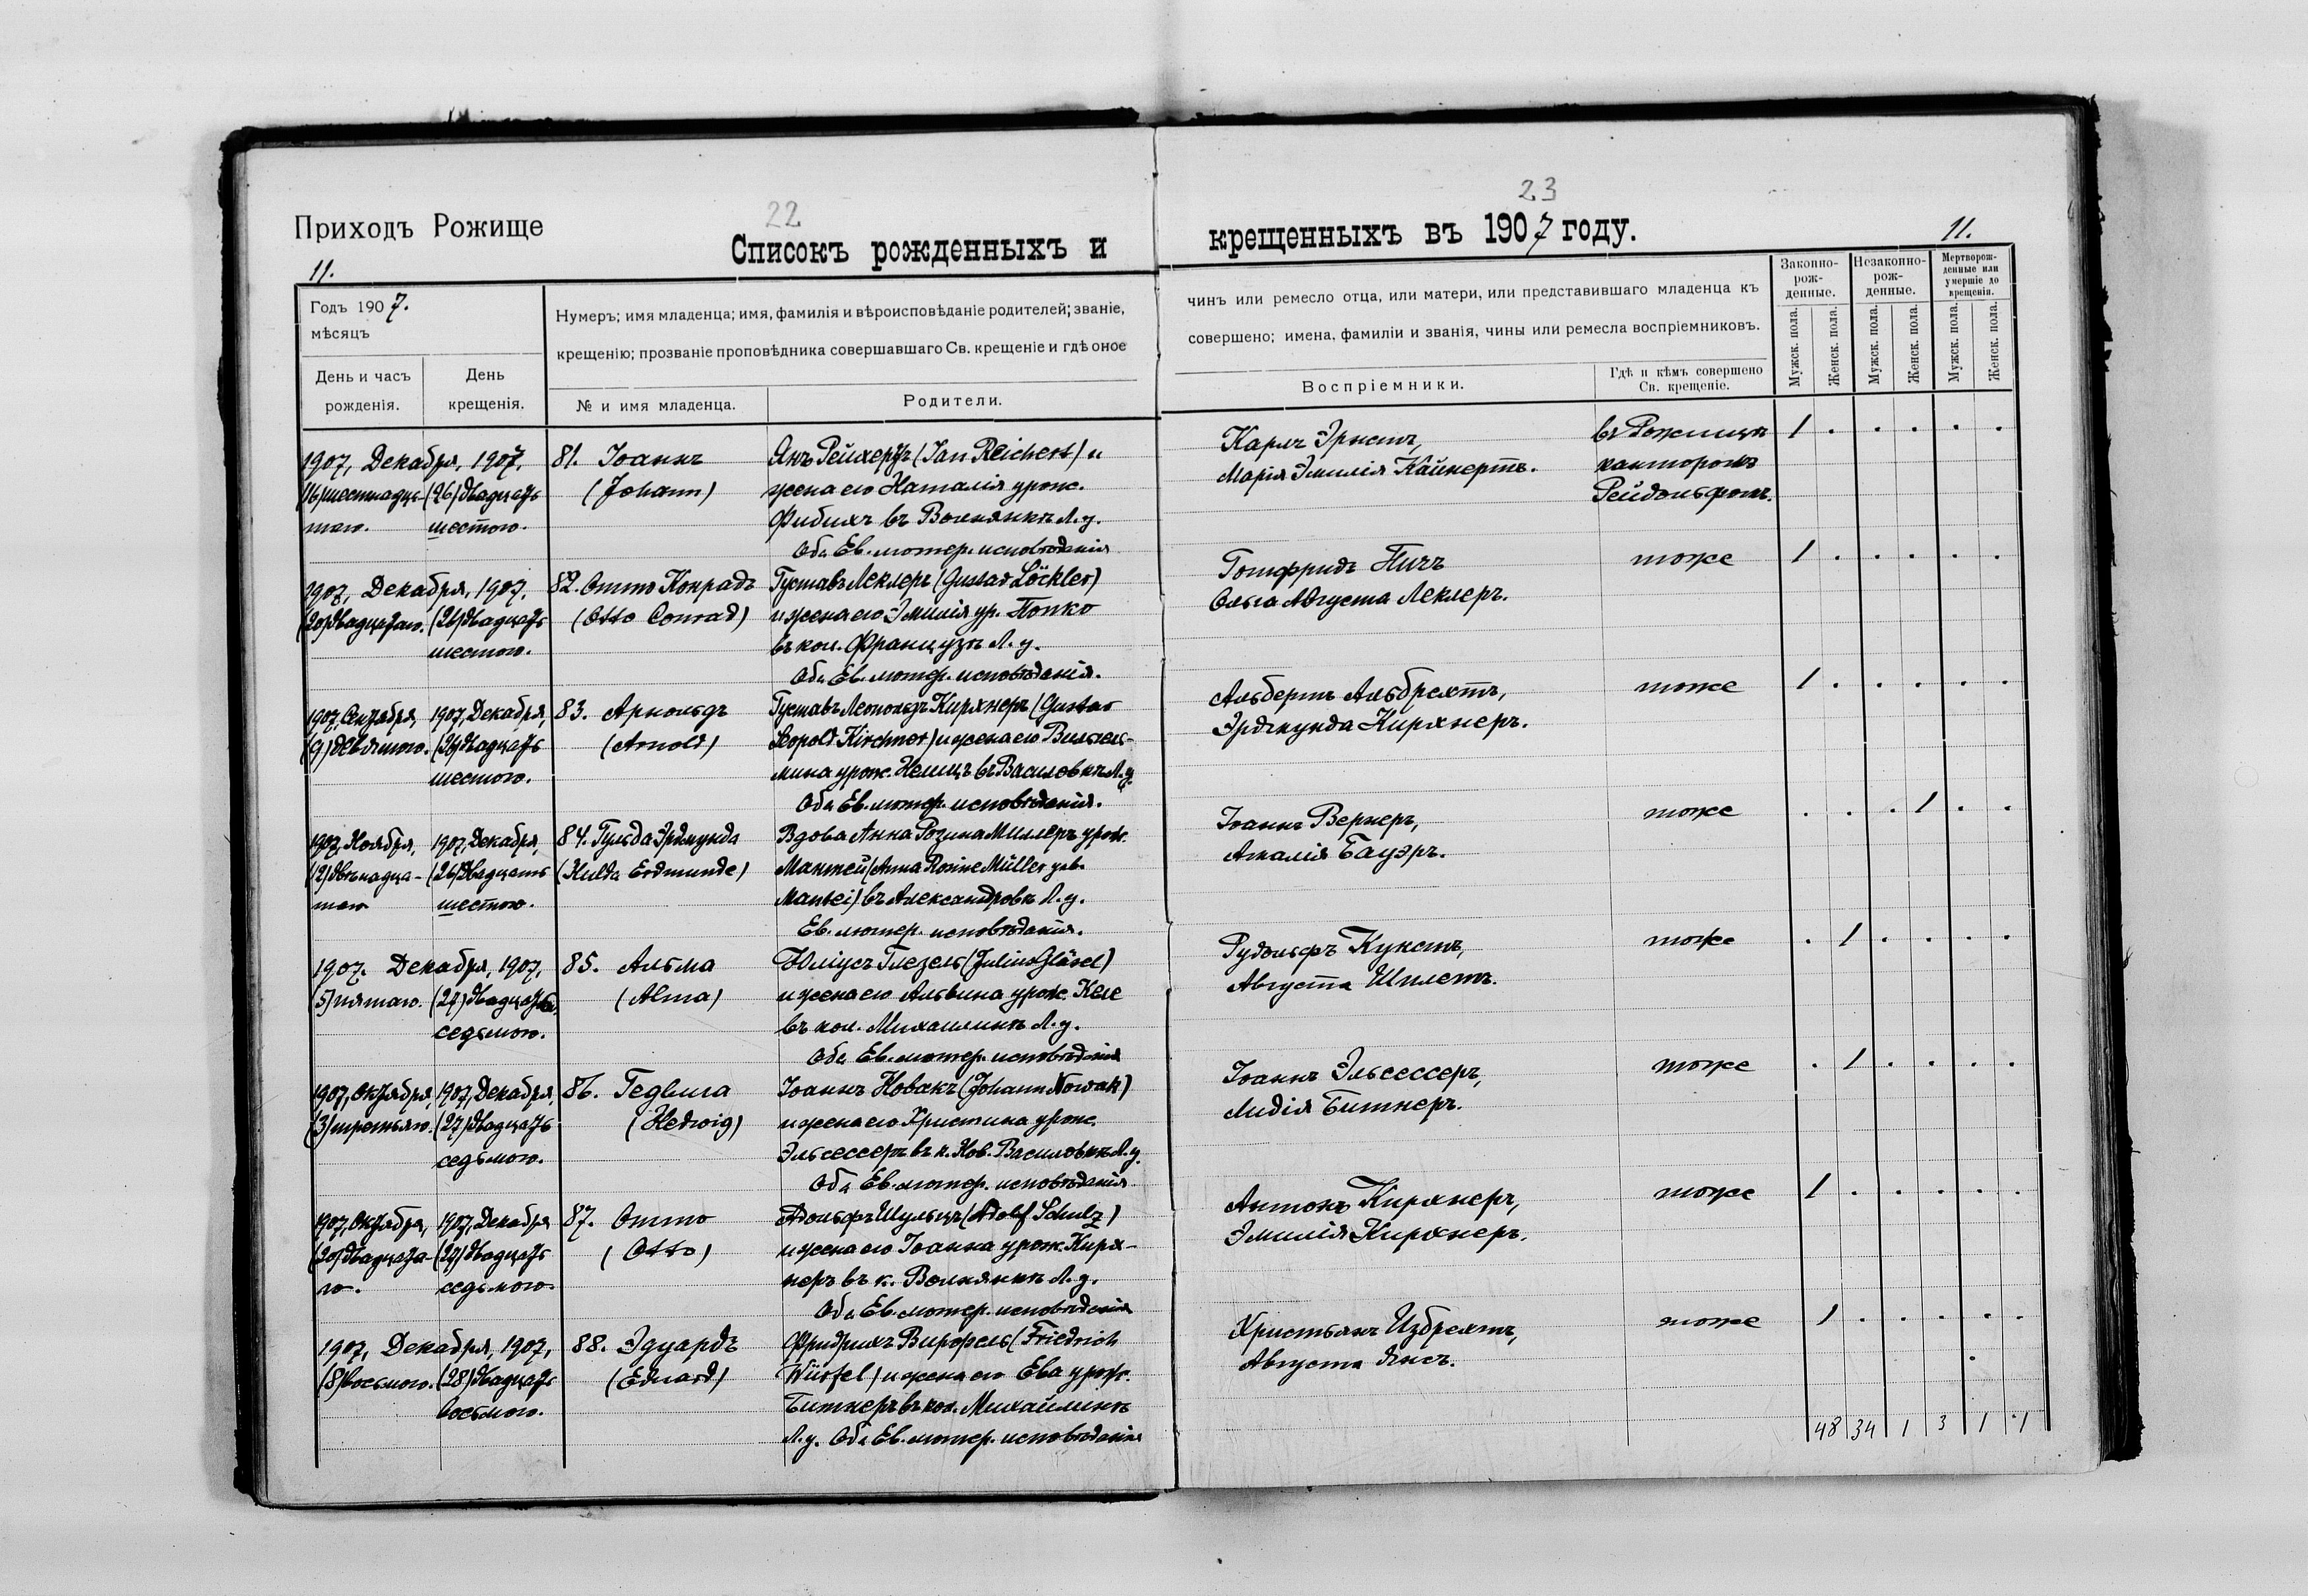 22
23
Приходъ Рожище
Списокъ рожденныхъ и
крещенныхъ въ 1907 году.
11.
11.
Годъ 1907.
мѣсяцъ
День и часъ
рожденія.
День
крещенія.
Нумеръ; имя младенца; имя, фамилія и вѣроисповѣданіе родителей; званіе,
крещенію; прозваніе проповѣдника совершавшаго Св. крещеніе и гдѣ оное
№ и имя младенца.
Родители.
чинъ или ремесло отца, или матери, или представившаго младенца къ
совершено; имена, фамиліи и званія, чины или ремесла воспріемниковъ.
Воспріемники.
Гдѣ и кѣмъ совершено
Св. крещеніе.
Законно-
рож-
денные.
Незаконно-
рож-
денные.
Мертворож-
денные или
умершіе до
крещенія.
Мужск. пола.
Женск. пола.
Мужск. пола.
Женск. пола.
Мужск. пола.
Женск. пола.
1907, Декабря, 1907,
(16) шестнадца-
таго.
(26) двадцать
шестого.
81. Іоаннъ
(Johann)
Янъ Рейхертъ (Jan Reichert) и
жена его Наталія урож.
Фибихъ въ Волнянкѣ Л. у.
Оба Ев. лютер. исповѣданія
Карлъ Эрнстъ,
Марія Эмилія Кайнертъ.
въ Рожищѣ
канторомъ
Рейдольфомъ.
1
1907, Декабря, 1907,
(20) двадцатаго.
(26) двадцать
шестого.
82. Отто Конрадъ
(Otto Conrad)
Густавъ Леклеръ (Gustav Löckler)
и жена его Эмилія ур. Попко
въ кол. Французѣ Л. у.
Оба Ев. лютер. исповѣданія.
Готфридъ Пичъ
Ольга Августа Леклеръ.
тоже
1
1907, Сентября,
(9) девятого.
1907, Декабря,
(26) двадцать
шестого.
83. Арнольдъ
(Arnold)
Густавъ Леопольдъ Кирхнеръ (Gustav
Leopold Kirchner) и жена его Вильгель-
мина урож. Немицъ въ Василовкѣ Л. у.
Оба Ев. лютер. исповѣданія.
Альбертъ Альбрехтъ,
Эрдмунда Кирхнеръ.
тоже
1
1907, Ноября,
(12) двѣнадца-
таго
1907, Декабря,
(26) двадцать
шестого.
84. Гульда Эрдмунда
(Hulda Erdmunde)
Вдова Анна Розина Миллеръ урож.
Мантей (Anna Rosine Müller geb.
Mantei) въ Александровкѣ Л. у.
Ев. лютер. исповѣданія.
Іоаннъ Вернеръ,
Амалія Бауэръ.
тоже
1
1907. Декабря, 1907,
(5) пятаго.
(27) двадцать
седьмого.
85. Альма
(Alma)
Юліусъ Глезель (Julius Gläsel)
и жена его Альвина урож. Келе
въ кол. Михайлинѣ Л. у.
Оба Ев. лютер. исповѣданія
Рудольфъ Кунстъ,
Августа Шилетъ.
тоже
1
1907, Октября,
(3) третьяго.
1907, Декабря,
(27) двадцать
седьмого.
86. Гедвига
(Hedwig)
Іоаннъ Новакъ (Johann Nowak)
и жена его Христина урож.
Эльсессеръ въ к. Нов. Василовкѣ Л. у.
Оба Ев. лютер. исповѣданія
Іоаннъ Эльсессеръ,
Лидія Битнеръ.
тоже
1
1907, Октября,
(20) двадцата-
го.
1907, Декабря
(27) двадцать
седьмого.
87. Отто
(Otto)
Адольфъ Шульцъ (Adolf Schulz)
и жена его Іоанна урож. Кирх-
неръ въ к. Волнянкѣ Л. у.
Оба Ев. лютер. исповѣданія
Антонъ Кирхнеръ,
Эмилія Кирхнеръ.
тоже
1
1907, Декабря, 1907,
(8) восьмого.
(28) двадцать
восьмого.
88. Эдуардъ
(Eduard)
Фридрихъ Вирфель (Friedrich
Würfel) и жена его Ева урож.
Битнеръ въ кол. Михайлинѣ
Л. у. Оба Ев. лютер. исповѣданія
Христьянъ Избрехтъ,
Августа Янсъ.
тоже
1
48 34 1 3 1 1